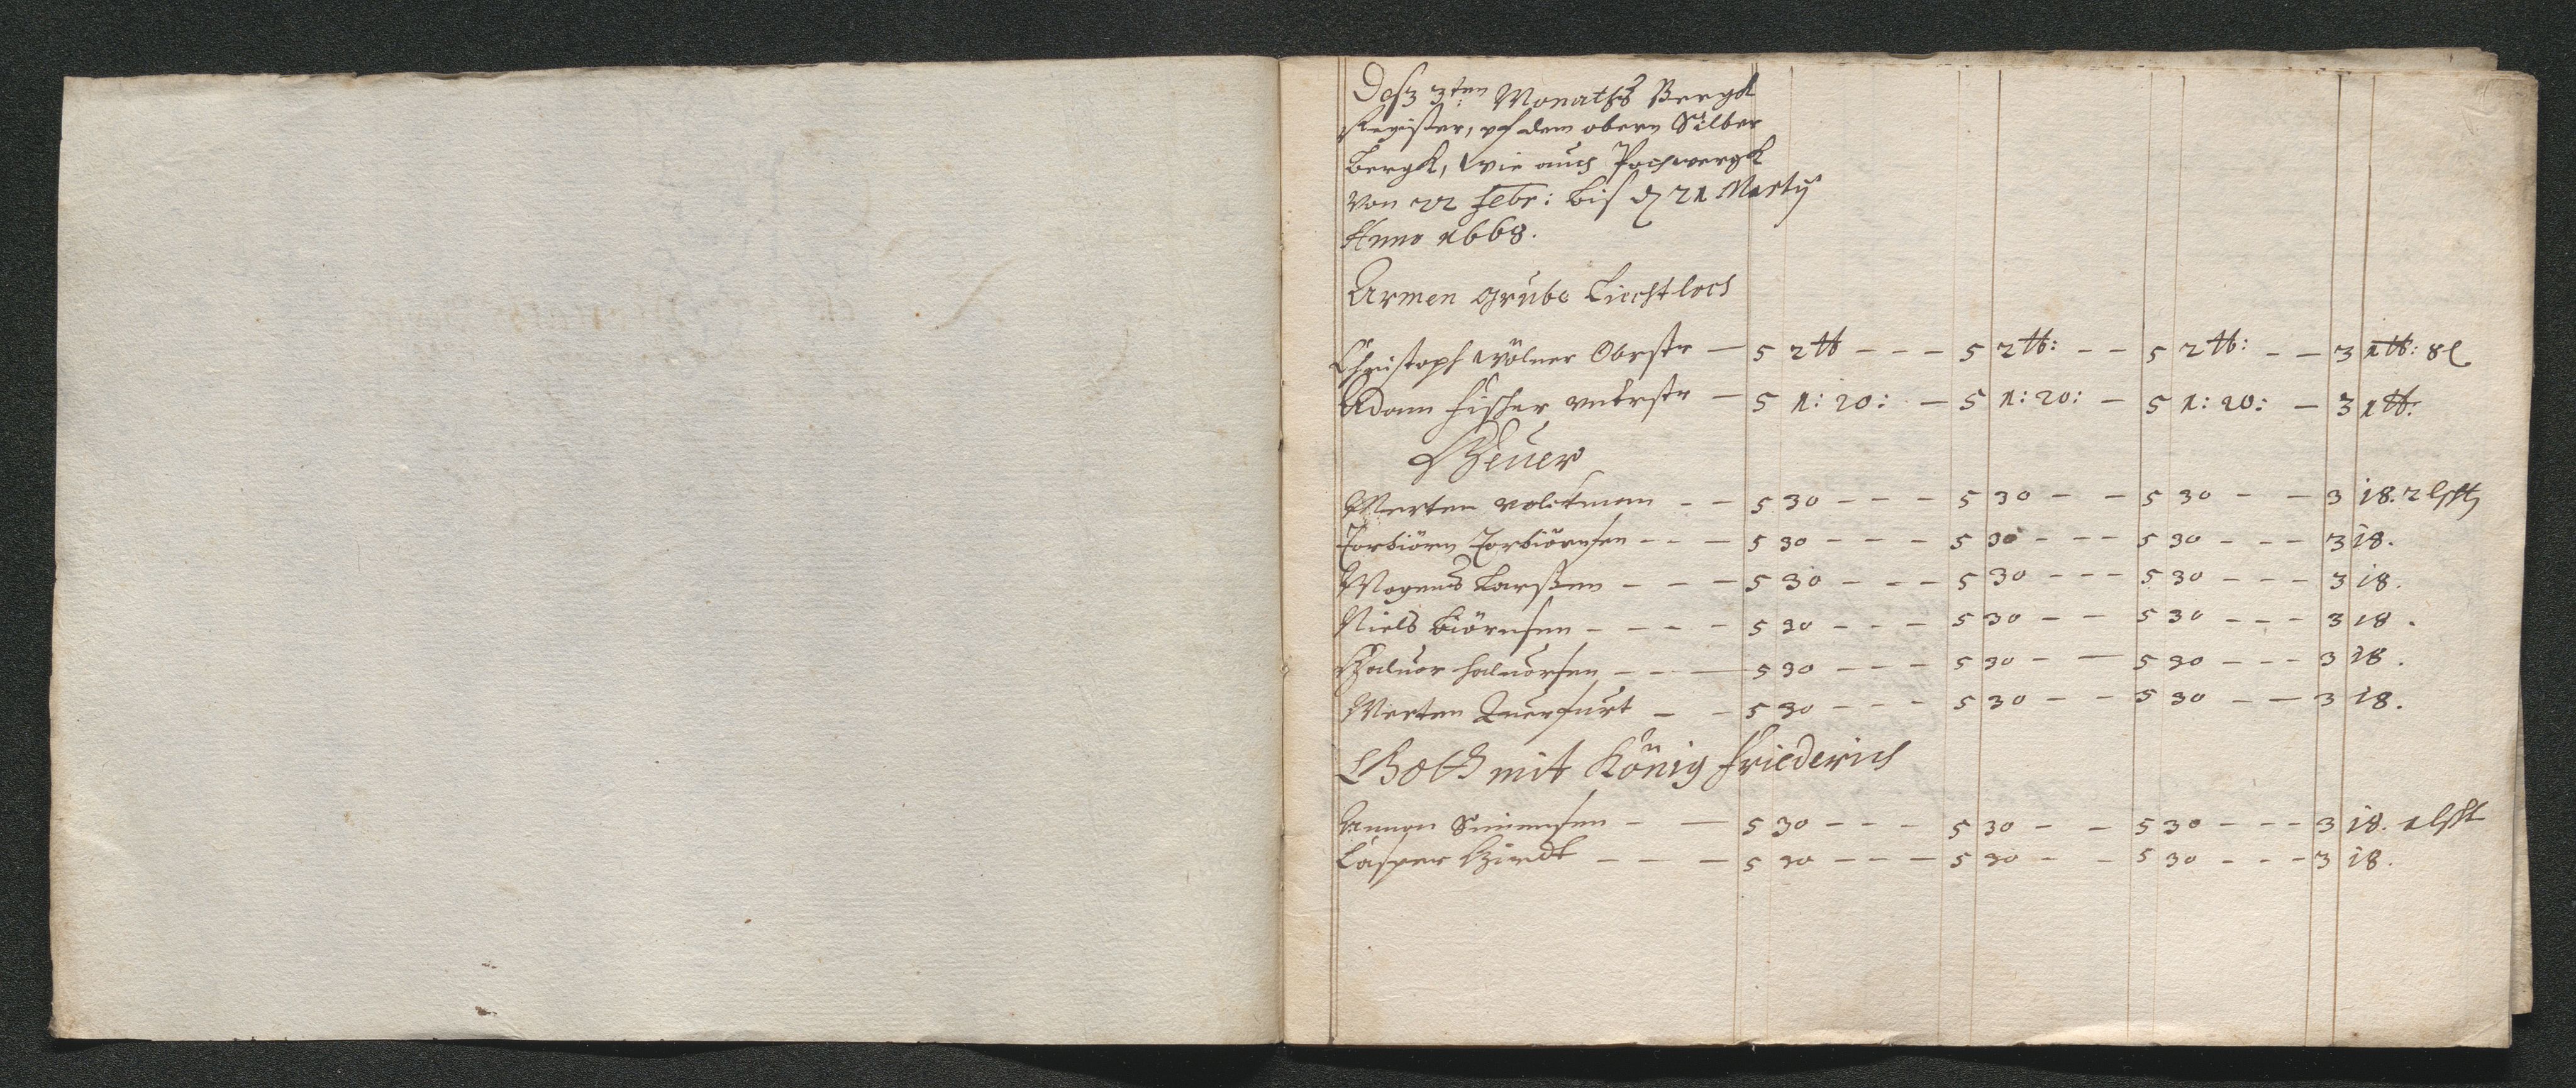 Deß 3ten: Monaths Bergk
Register, vf dem obern Silber
bergk, Wie auch Pochwergk
Von 22 Febr: biß dn 21 Marty
Anno 1668.
Armen grube Liechtloch
Christoph Wölner Obrstr — 5 2 tℓ - - - 5 2 tℓ: - - 5 2 tℓ: - - 3 1 tℓ: 8 ℓ
Adam Fischer vntrstr — 5 1: 20: — 5 1: 20: — 5 1: 20: — 3 1 tℓ:
Heüer
Merten volckman - - 5 30 - - - 5 30 - - 5 30 - - 3 18. 2
Torbiörn Torbiörnsen - - - 5 30 - - - 5 30 - - - 5 30 - - - 3 18.
Mogens Larßen - - - 5 30 - - - 5 30 - - - 5 30 - - - 3 18.
Niels Biörnsen - - - - 5 30 - - - 5 30 - - 5 30 - - - 3 18.
Haluor haluorsen - - - 5 30 - - - 5 30 - - 5 30 - - - 3 18.
Merten Querfurt - - 5 30 - - - 5 30 - - 5 30 - - 3 18.
mit König Friederich
Simensen - - 5 30 - - - 5 30 - - 5 30 - - - 3 18. 1
Casper Hirdt - - - 5 30 - - - 5 30 - - 5 30 - - - 3 18.